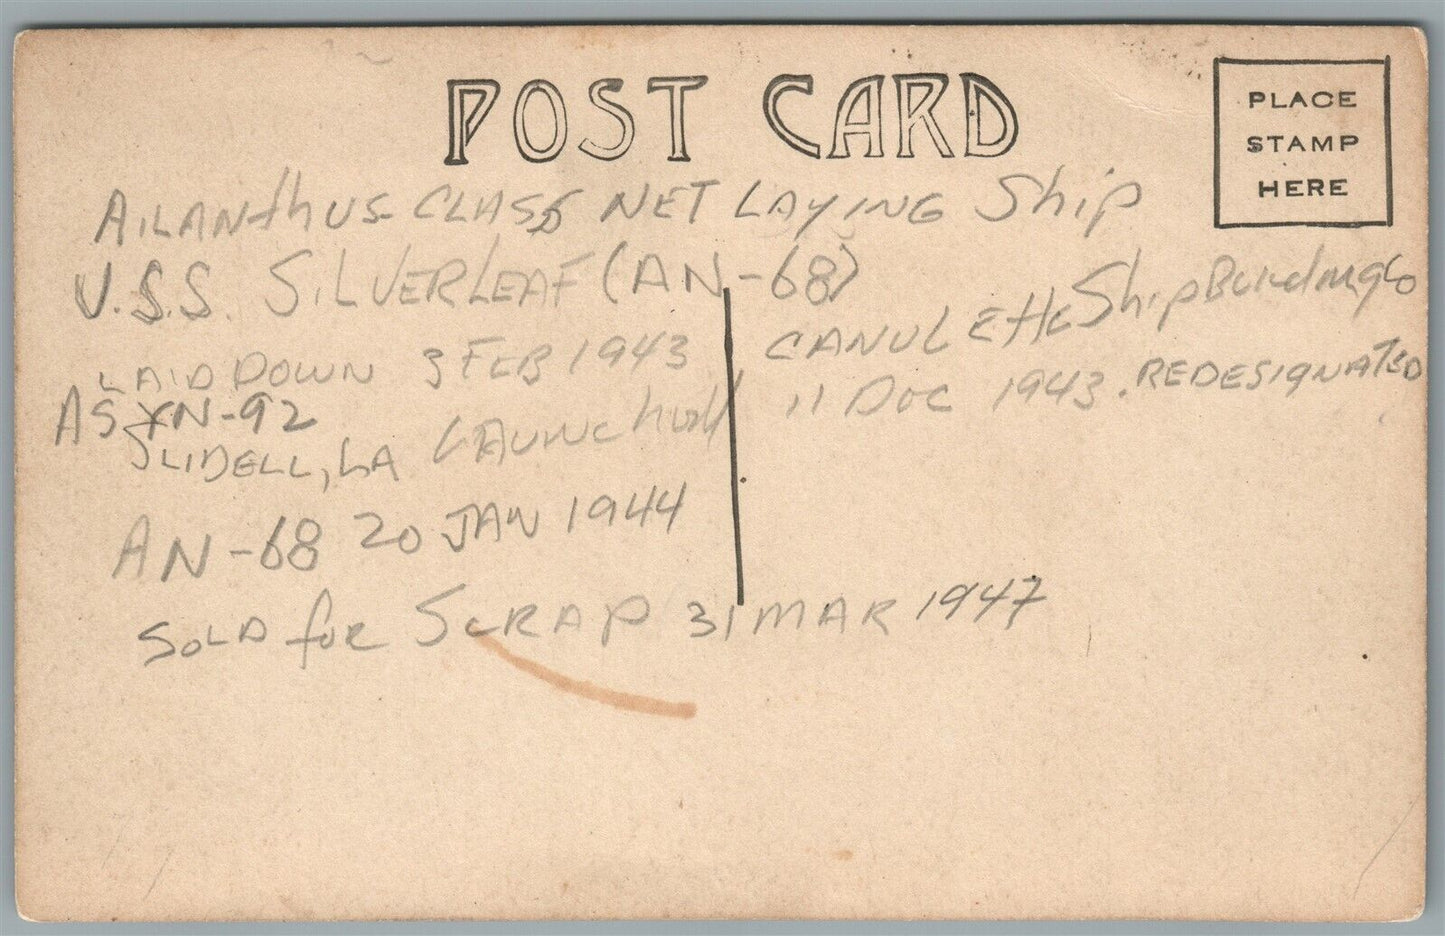 POST CARD
PLACE
STAMP
HERE
AILANthUS CLASS NET LAYING Ship
U.S.S. SILVERLEAF (AN-68)
LAID DOWN 3 FEB 1943 CANULEttE ShipBuilding Co
AS YN-92
SLIDELL, LA LAUNChed 11 DEC 1943. REDESIGNATED
AN-68 20 JAN 1944
SOLD foR SCRAP 31 MAR 1947